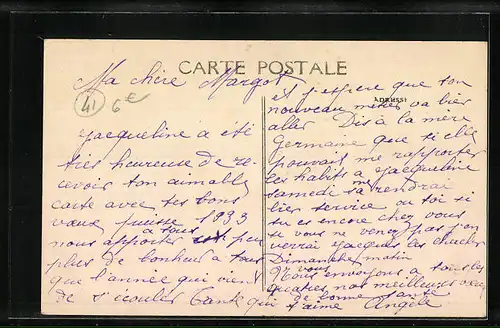 CARTE POSTALE
Ma chère Margot
41 6e
Jacqueline a été
très heureuse de re-
cevoir ton aimable
carte avec tes bons
vœux puisse 1933
à tous
nous apporter un peu
plus de bonheur à tous
que l'année qui vient
de s'écouler Tante qui t'aime Angèle
et j'espère que ton
nouveau métier va bien
ADRESSE
aller Dis à la mère
Germaine que si elle
pouvait me rapporter
les habits a Jacqueline
samedi sa m rendrai
bien service ou toi si
tu es encore chez vous
si vous ne venez pas j'en
verrai Jacques les chercher
Dimanche matin
vous
Nous envoyons a tous les
quatres nos meilleurs vœux
de bonne santé